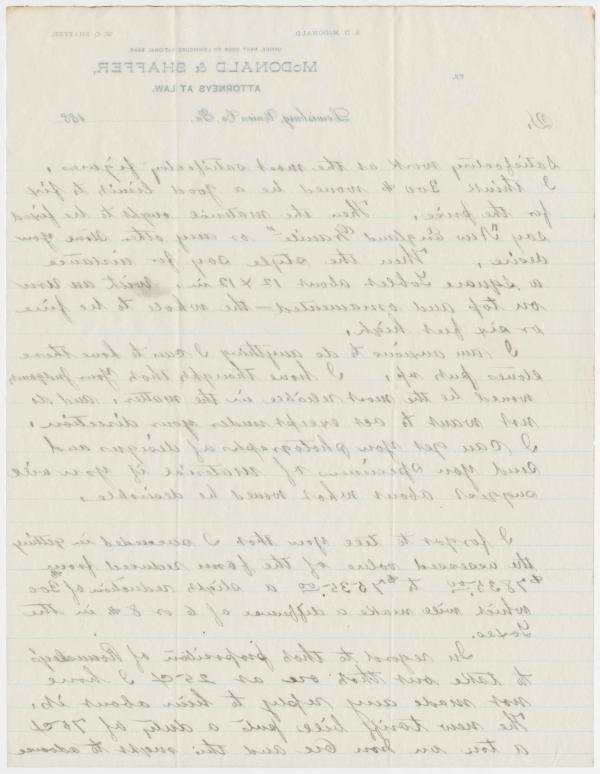 S. D. McDONALD. W. O. SHAFFER.
OFFICE, NEXT DOOR TO LEWISBURG NATIONAL BANK
McDONALD & SHAFFER,
ATTORNEYS AT LAW.
Lewisburg, Union Co. Pa. 188
satisfactory work at the most satisfactory figures.
I think 300 $ would be a good limit to fix
for the price. Then the material ought to be fixed
say "New England Granite" or any other stone you
desire. Then the style say for instance
a square Tablet about 12 x 12 in. with an urn
on top and ornamented – the whole to be five
or six feet high.
I am anxious to do anything I can to have these
stones put up. I have thought that your judgment
would be the most reliable in the matter, and do
not want to act except under your direction.
I can get you photographs of designs and
send you specimens of material if you will
suggest about what would be desirable.
I forgot to tell you that I succeeded in getting
the assessed value of the farm reduced from
$7835.00 to $7535.00 a slight reduction of 300
which will make a difference of 6 or 8 $ in the
Taxes.
In regard to that proposition of
to take out that ore at 25 cts I have
not made any reply to him about it.
The new tariff bill puts a duty of 75 cts
a ton on Iron Ore and this ought to advance